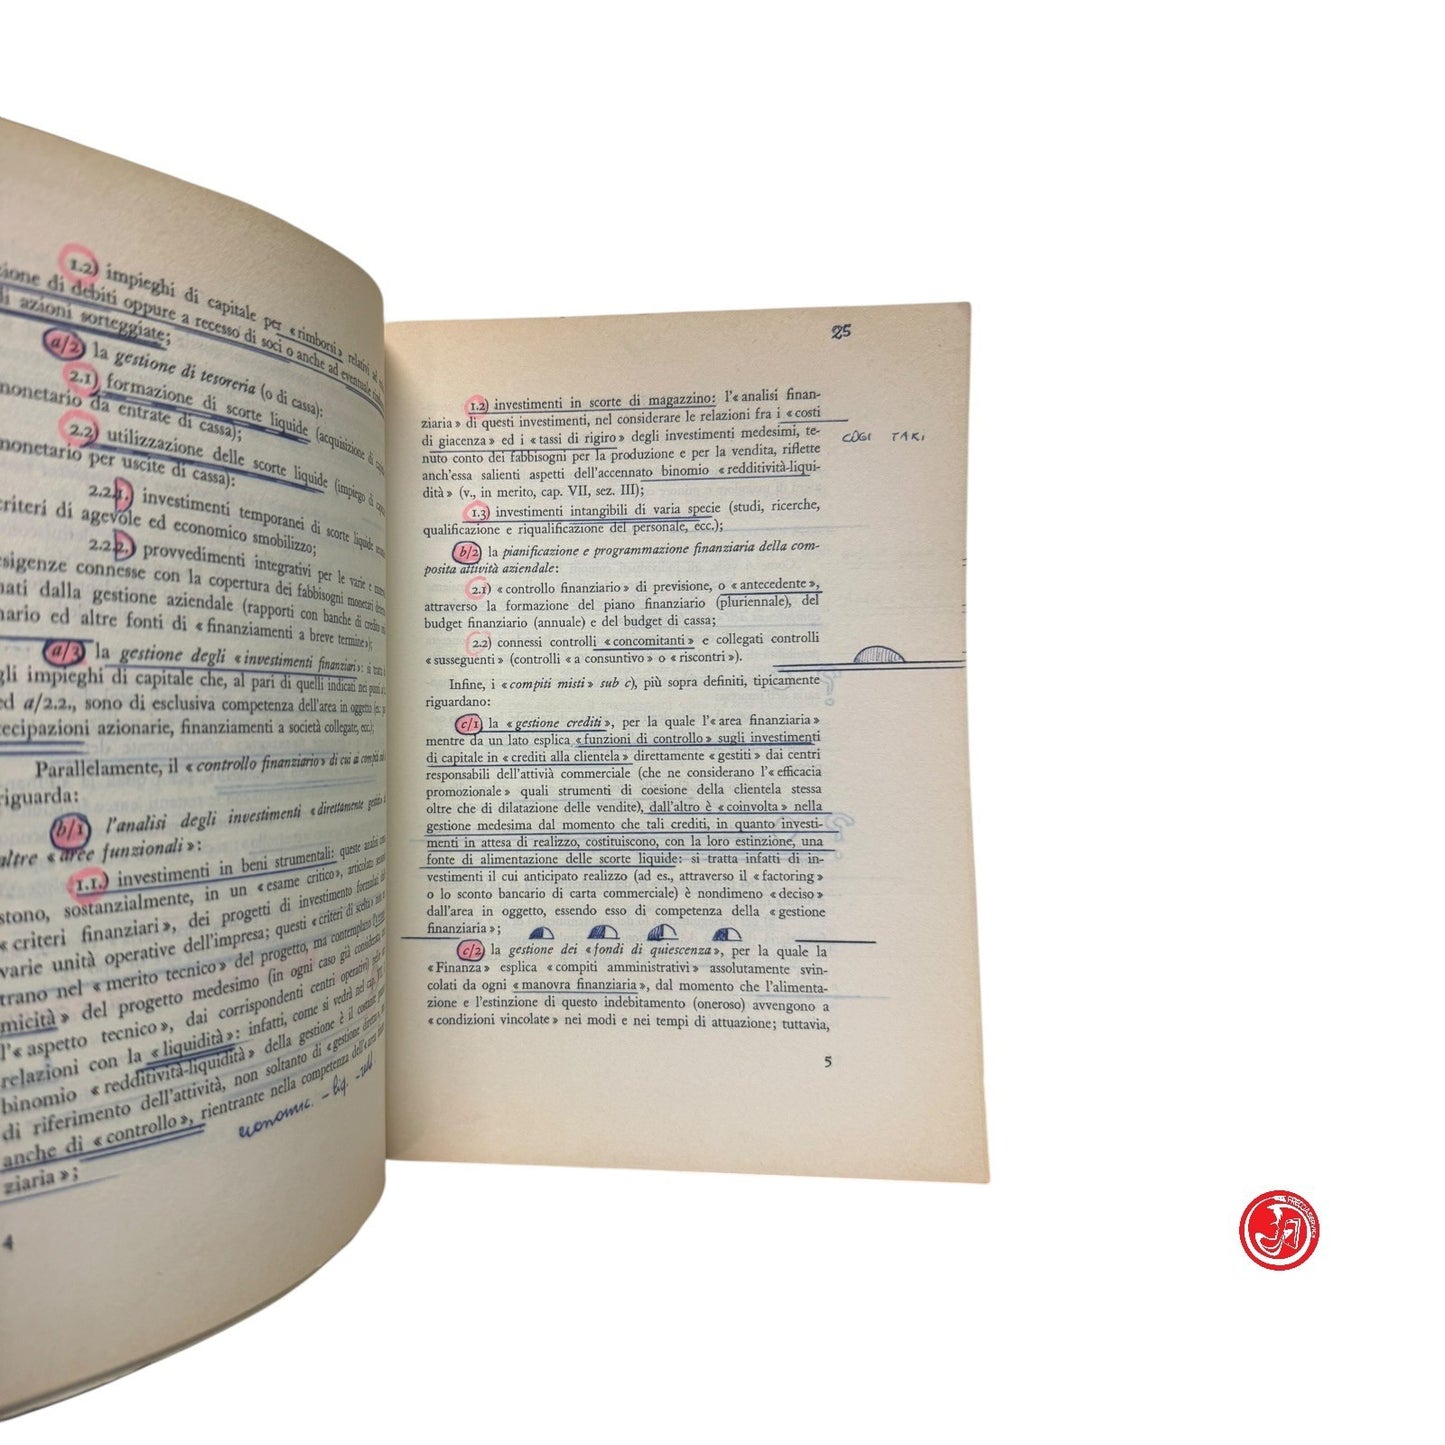 1.2) impieghi di capitale per « rimborsi » relativi ad
zione di debiti oppure a recesso di soci o anche ad eventuale
di azioni sorteggiate;
a/2) la gestione di tesoreria (o di cassa):
2.1) formazione di scorte liquide (acquisizione di
monetario da entrate di cassa);
2.2) utilizzazione delle scorte liquide (impiego di
monetario per uscite di cassa):
2.2.1.) investimenti temporanei di scorte liquide
criteri di agevole ed economico smobilizzo;
2.2.2.) provvedimenti integrativi per le varie e
esigenze connesse con la copertura dei fabbisogni monetari
nati dalla gestione aziendale (rapporti con banche di credito
nario ed altre fonti di « finanziamenti a breve termine »);
a/3) la gestione degli « investimenti finanziari »: si tratta
gli impieghi di capitale che, al pari di quelli indicati nei punti
ed a/2.2., sono di esclusiva competenza dell'area in oggetto (es.
tecipazioni azionarie, finanziamenti a società collegate, ecc.);
Parallelamente, il « controllo finanziario » di cui ai compiti sub
riguarda:
b/1) l'analisi degli investimenti « direttamente gestiti »
altre « aree funzionali »:
1.1.) investimenti in beni strumentali: queste analisi
stono, sostanzialmente, in un « esame critico », articolato
« criteri finanziari », dei progetti di investimento formulati
varie unità operative dell'impresa; questi « criteri di scelta »
trano nel « merito tecnico » del progetto, ma contemplano
micità » del progetto medesimo (in ogni caso già considerata
l'« aspetto tecnico », dai corrispondenti centri operativi)
relazioni con la « liquidità »: infatti, come si vedrà nel cap.
binomio « redditività-liquidità » della gestione è il costante
di riferimento dell'attività, non soltanto di « gestione diretta »,
anche di « controllo », rientrante nella competenza dell'« area
ziaria »;
economic. - liq. - red
4
25
1.2) investimenti in scorte di magazzino: l'« analisi finan-
ziaria » di questi investimenti, nel considerare le relazioni fra i « costi
di giacenza » ed i « tassi di rigiro » degli investimenti medesimi, te-
nuto conto dei fabbisogni per la produzione e per la vendita, riflette
anch'essa salienti aspetti dell'accennato binomio « redditività-liqui-
dità » (v., in merito, cap. VII, sez. III);
1.3) investimenti intangibili di varia specie (studi, ricerche,
qualificazione e riqualificazione del personale, ecc.);
b/2) la pianificazione e programmazione finanziaria della com-
posita attività aziendale:
2.1) « controllo finanziario » di previsione, o « antecedente »,
attraverso la formazione del piano finanziario (pluriennale), del
budget finanziario (annuale) e del budget di cassa;
2.2) connessi controlli « concomitanti » e collegati controlli
« susseguenti » (controlli « a consuntivo » o « riscontri »).
Infine, i « compiti misti » sub c), più sopra definiti, tipicamente
riguardano:
c/1) la « gestione crediti », per la quale l'« area finanziaria »
mentre da un lato esplica « funzioni di controllo » sugli investimenti
di capitale in « crediti alla clientela » direttamente « gestiti » dai centri
responsabili dell'attivià commerciale (che ne considerano l'« efficacia
promozionale » quali strumenti di coesione della clientela stessa
oltre che di dilatazione delle vendite), dall'altro è « coinvolta » nella
gestione medesima dal momento che tali crediti, in quanto investi-
menti in attesa di realizzo, costituiscono, con la loro estinzione, una
fonte di alimentazione delle scorte liquide: si tratta infatti di in-
vestimenti il cui anticipato realizzo (ad es., attraverso il « factoring »
o lo sconto bancario di carta commerciale) è nondimeno « deciso »
dall'area in oggetto, essendo esso di competenza della « gestione
finanziaria »;
c/2) la gestione dei « fondi di quiescenza », per la quale la
« Finanza » esplica « compiti amministrativi » assolutamente svin-
colati da ogni « manovra finanziaria », dal momento che l'alimenta-
zione e l'estinzione di questo indebitamento (oneroso) avvengono a
« condizioni vincolate » nei modi e nei tempi di attuazione; tuttavia,
5